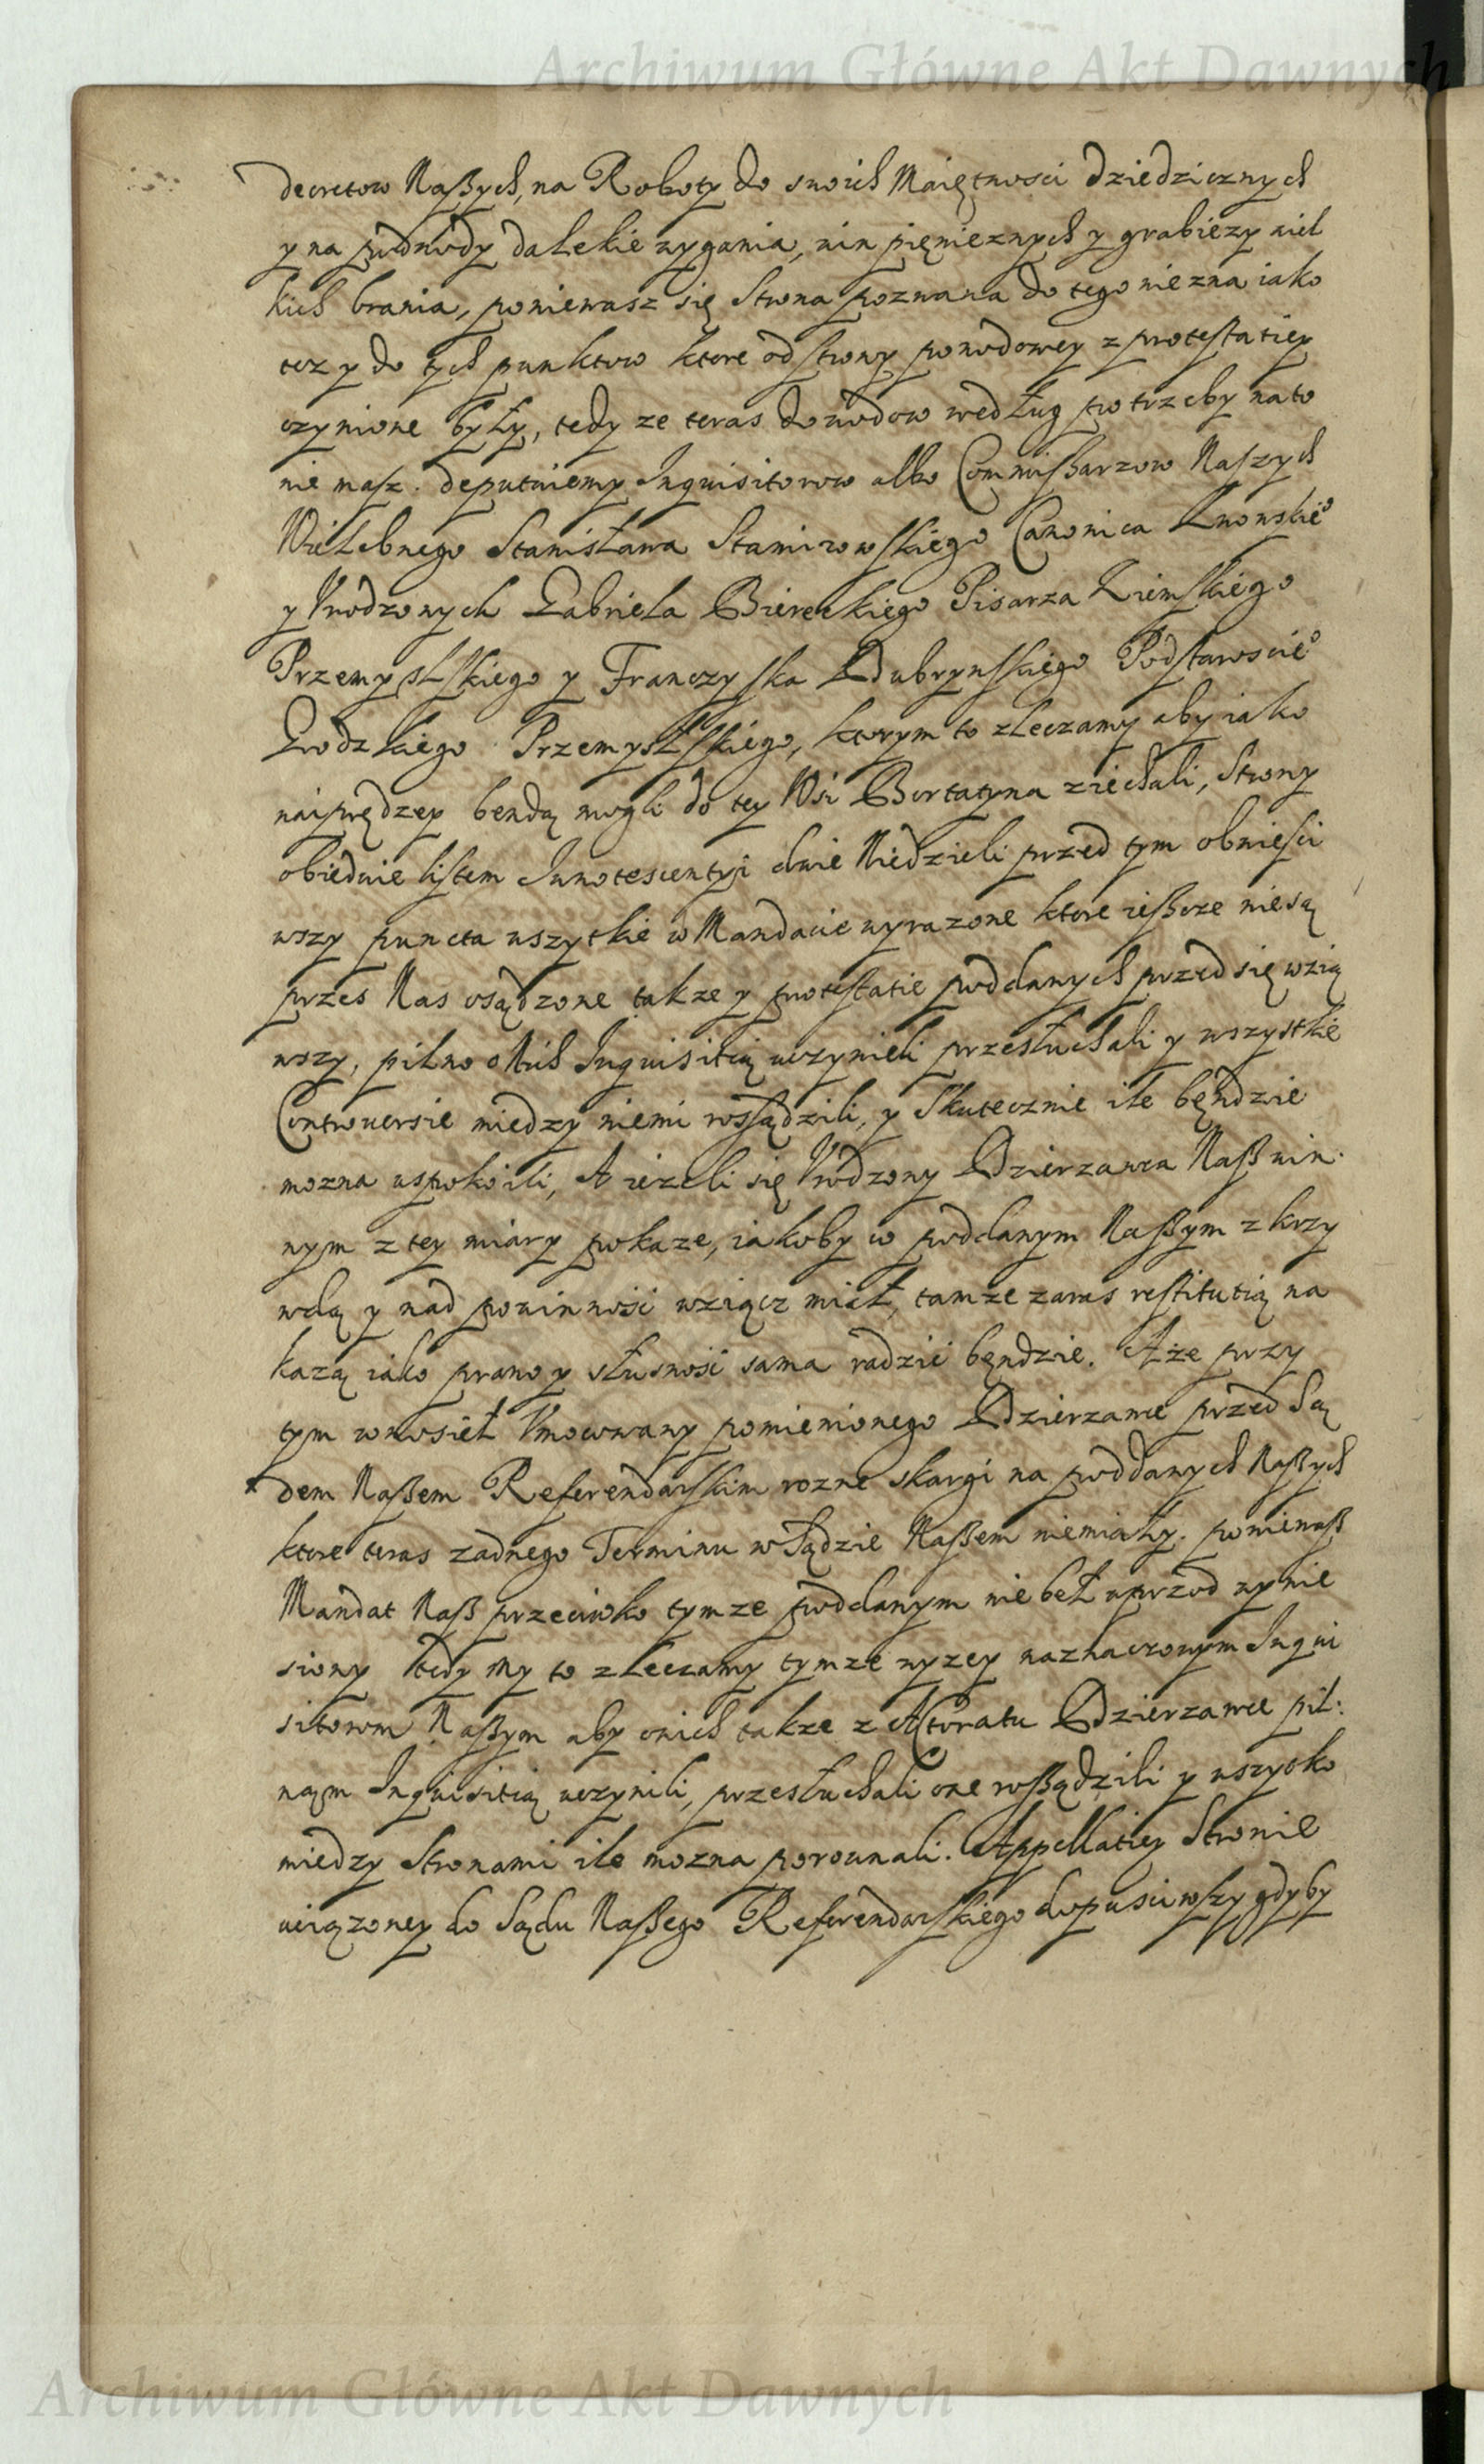 Archiwum Główne Akt Dawnych
decretow Naßych, na Roboty do swoich Maiętnosci dziedzicznych
y na podwody dalekie wygania, win pięnieznych y grabiezy wiel
kich brania, poniewasz się Strona pozwana do tego niezna iako
tez y do tych punktow ktore od strony powodowey z protestatiey
czynione były, tedy ze teras dowodow według potrzeby na to
nie masz. deputuiemy Inquisitorow albo Commißarzow Naszych
Wielebnego Stanisława Stamirowskiego Canonica Lwowskie°
y Urodzonych Gabriela Biereckiego Pisarza Ziemskiego
Przemyslskiego y Franczyska Dubrynskiego Podstaroscie°
Grodzkiego Przemyslskiego, ktorym to zleczamy aby iako
naiprędzey bendą mogli do tey Wsi Bortatyna ziechali, Strony
obiedwie listem Innotescentyi dwie Niedzieli przed tym obwieści
wszy puncta wszytkie w Mandacie wyrazone ktore ießcze nie są
przes Nas osądzone takze y protestatie poddanych przed się wzią
wszy, pilno onich Inquisitią uczynieli przesłuchali y wszystkie
Controversie miedzy niemi rossądzili, y Skutecznie ile będzie
mozna uspokoili, A iezeli się Urodzony Dzierzawca Naß win.
nym z tey miary pokaze, iakoby w poddanym Naßym z krzy
wdą y nad powinność wziącz miał, tamze zaras restitutią na
kazą iako prawo y słusność sama radzić bęndzie. Aże przy
tym wnosieł Umocowany pomienionego Dzierzawce przed Są
dem Naßem Referendarskim rozne skargi na poddanych Naßych
ktore teras zadnego Terminu w Sądzie Naßem niemiały. poniewaß
Mandat Naß przeciwko tymze poddanym nie beł wprzod wynie
siony tedy My to zleczamy tymze wyzey naznaczonym Inqui
sitorom Naßym aby onich takze z Actoratu Dzierzawce pil:
nąm Inquisitią uczynili, przesłuchali one roßądzili y wszytko
miedzy Stronami ile mozna porownali. Appellatiey Stronie
uciązoney do Sądu Naßego Referendarskiego dopusciwszy gdyby
Archiwum Główne Akt Dawnych